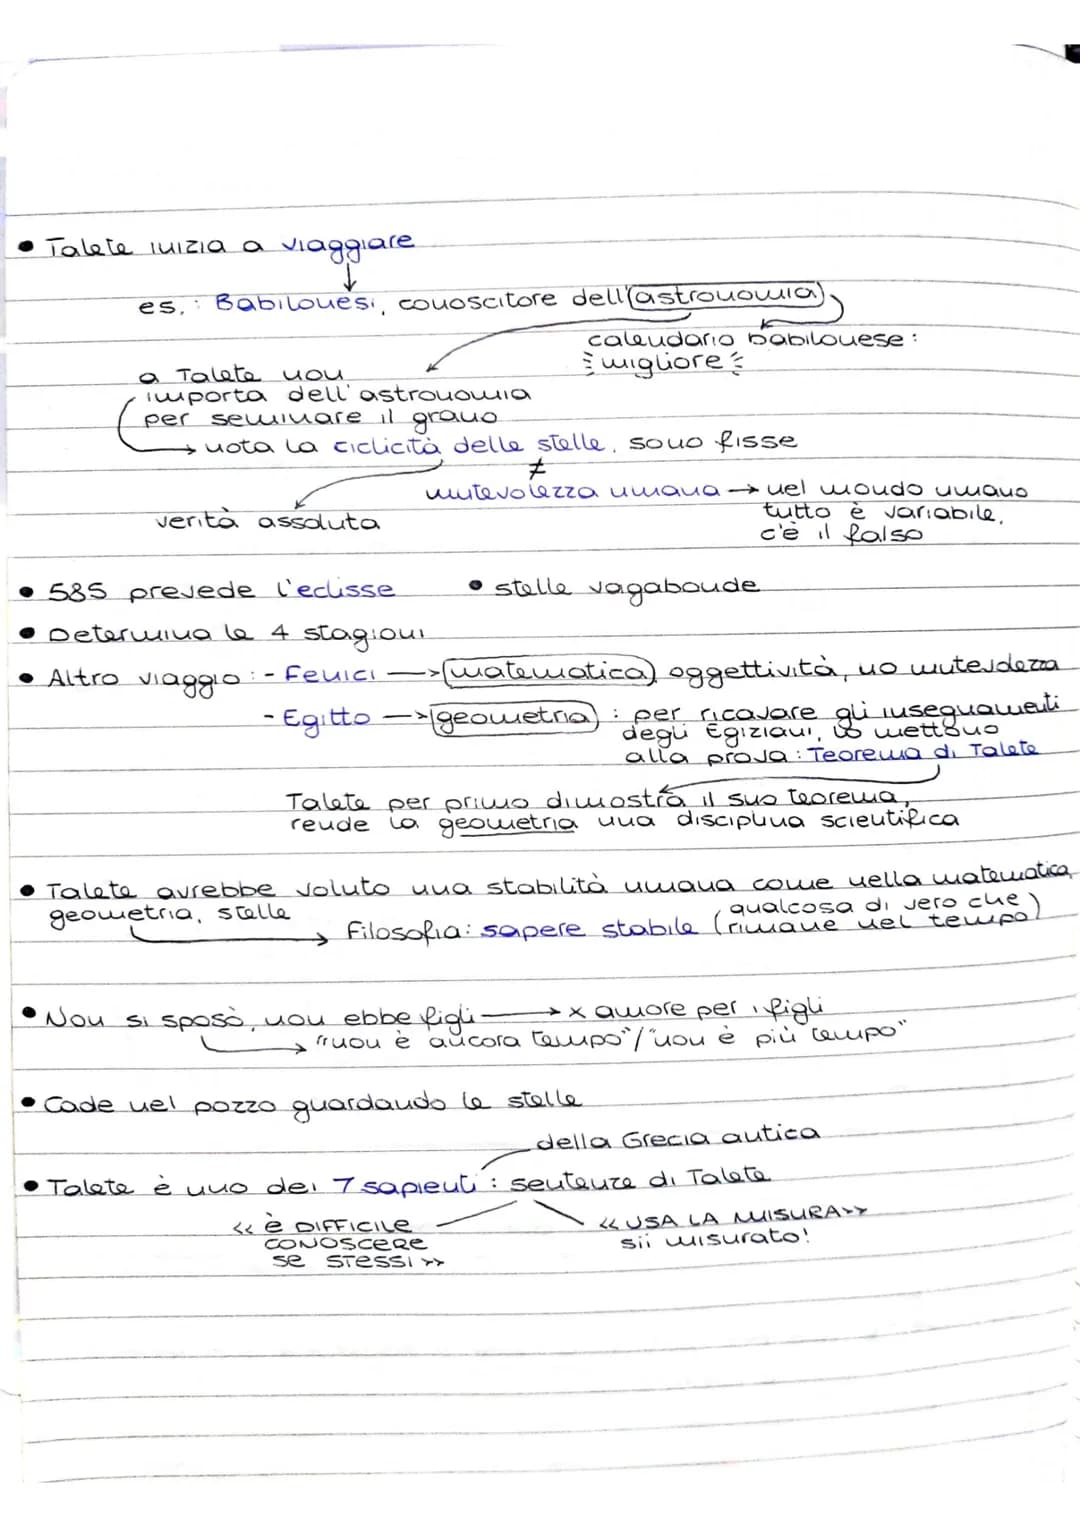 • Talete inizia a viaggiare
↓
es.: Babilonesi, conoscitore dell'astronomia
calendario babilonese:
migliore
a Talete non
importa dell'astronomia
per seminare il grano
→ nota la ciclicità delle stelle, sono fisse
≠
mutevolezza umana → nel mondo umano
tutto è variabile,
c'è il falso
verità assoluta
• 585 prevede l'eclisse • stelle vagabonde
• Determina le 4 stagioni
• Altro viaggio: - Fenici → matematica oggettività, no mutevolezza
- Egitto → geometria : per ricavare gli insegnamenti
degli Egiziani, lo mettono
alla prova: Teorema di Talete
Talete per primo dimostra il suo teorema,
rende la geometria una disciplina scientifica
• Talete avrebbe voluto una stabilità umana come nella matematica,
geometria, stelle
→ Filosofia: sapere stabile (qualcosa di vero che
rimane nel tempo)
• Non si sposò, non ebbe figli → x amore per i figli
→ "non è ancora tempo"/"non è più tempo"
• Cade nel pozzo guardando le stelle
della Grecia antica
• Talete è uno dei 7 sapienti: sentenze di Talete
<< è DIFFICILE
CONOSCERE
se STESSI >>
<< USA LA MISURA >>
sii misurato!